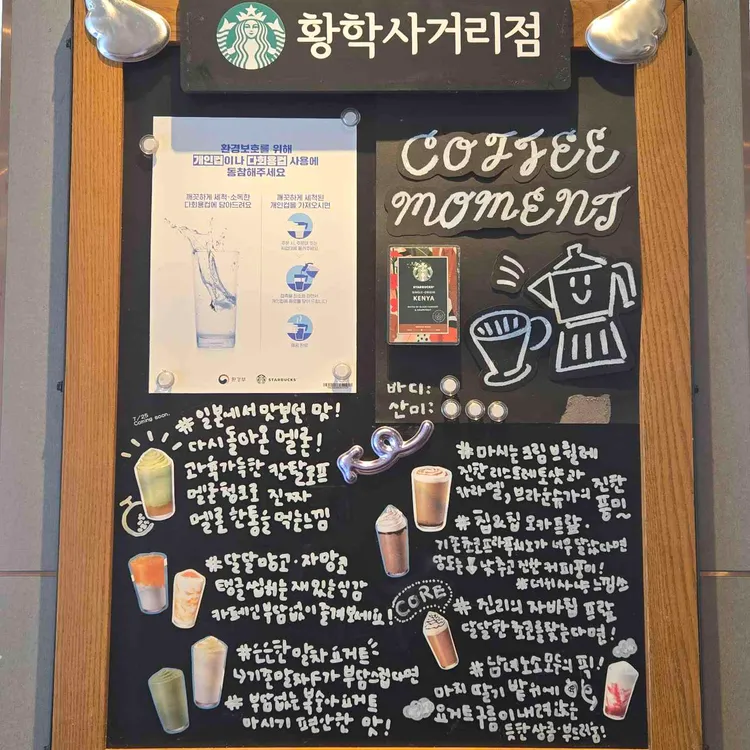 황학사거리점
환경보호를 위해
개인컵이나 다회용컵 사용에
동참해주세요
깨끗하게 세척·소독한
다회용컵에 담아드려요
깨끗하게 세척된
개인컵을 가져오시면
환경부
STARBUCKS
COFFEE
MOMENT
STARBUCKS
SINGLE-ORIGIN
KENYA
바디:
산미:
7/25
Coming soon.
#일본에서 맛보던 맛!
다시 돌아온 멜론!
과육가득한 칸탈로프
멜론청크로 진짜
멜론 한통을 먹는느낌
#달달망고·자망코
탱글 씹히는 재밌는식감
카페인 부담없이 즐겨보세요!
#은은한 말차 요거트
기존말차가 부담스럽다면
#부담없는 복숭아 요거트
마시기 편안한 맛!
#마시는크림브륄레
진한리스트레토샷과
카라멜, 브라운슈가의 진한
풍미~
#칩&칩 모카프랖
기존초코프라푸치노가 너무 달았다면
당도는 낮추고 진한 커피풍미!
#더위사냥느낌쓰
CORE
#진리의 자바칩 프랖
달달한 초코를찾는다면!
#남녀노소 모두의 픽!
마치 딸기 밭위에
요거트구름이 내려앉은
듯한 상콤·부드러움!